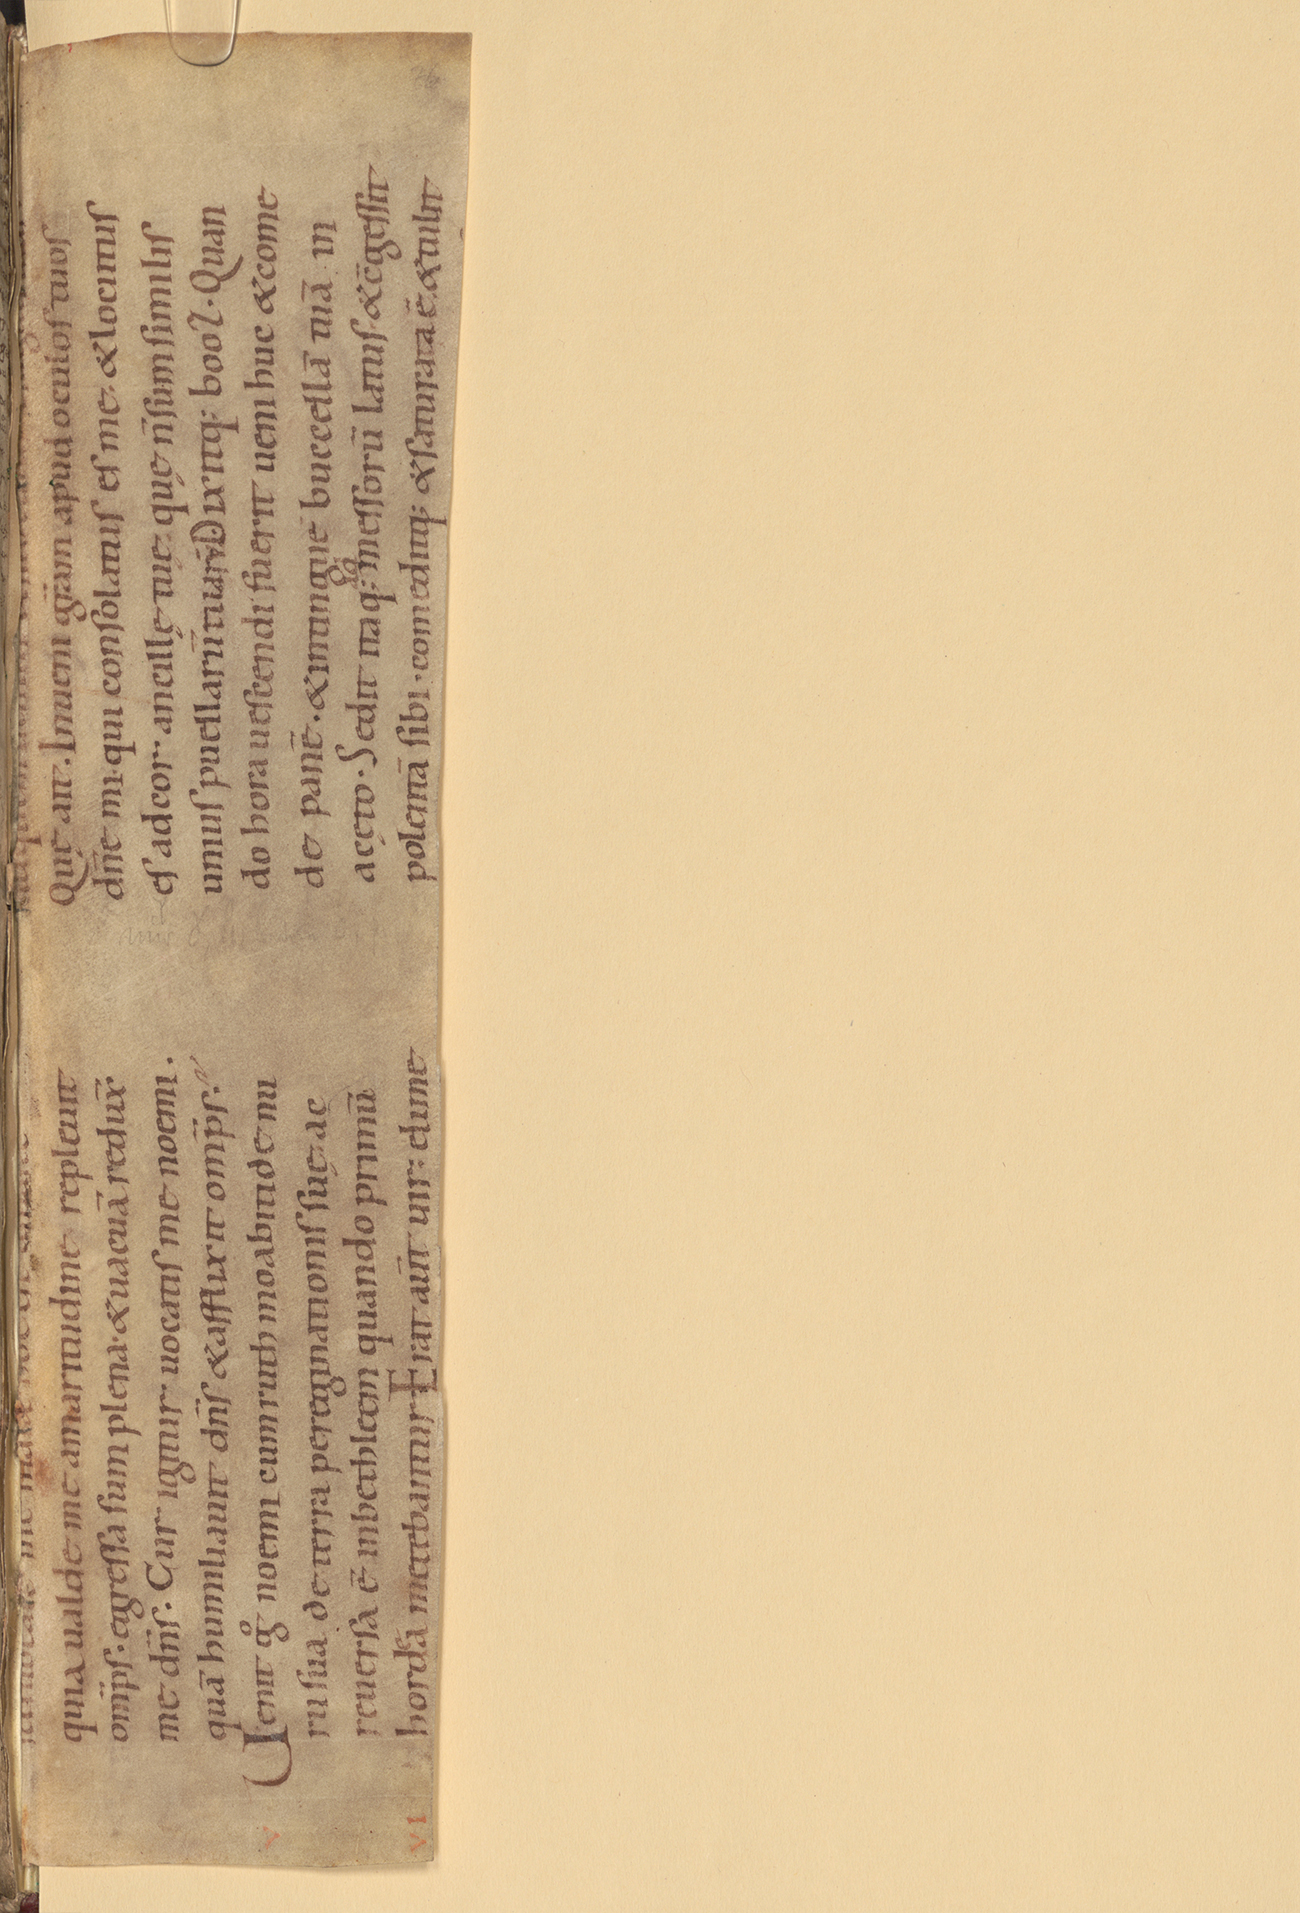 quia ualde me amaritudine repleuit
om̅ps. egressa sum plena. & uacuā redux̅
me dn̅s. Cur igitur uocatis me noemi.
quā humiliauit dn̅s & afflixit om̅ps.
V
Uenit gͦ noemi cum ruth moabitide nu
ru sua de terra peregrinationis suę. ac
reuersa ē in bethleem quando primū
VI
hordea metebantur. Erat aut̅ uir elime
Quę ait. Inueni gr̅am apud oculos tuos
dn̅e mi. qui consolatus es me. & locutus
es ad cor ancillę tuę. quę n̅ sum similis
unius puellarū tuarū. Dixitq; booz. Quan
do hora uescendi fuerit ueni huc & come
de panē. & intingue buccellā tuā in
acęto. Sedit itaq; ad messorū latus. & c̅gessit
polentā sibi. comeditq; & saturata ē. & tulit